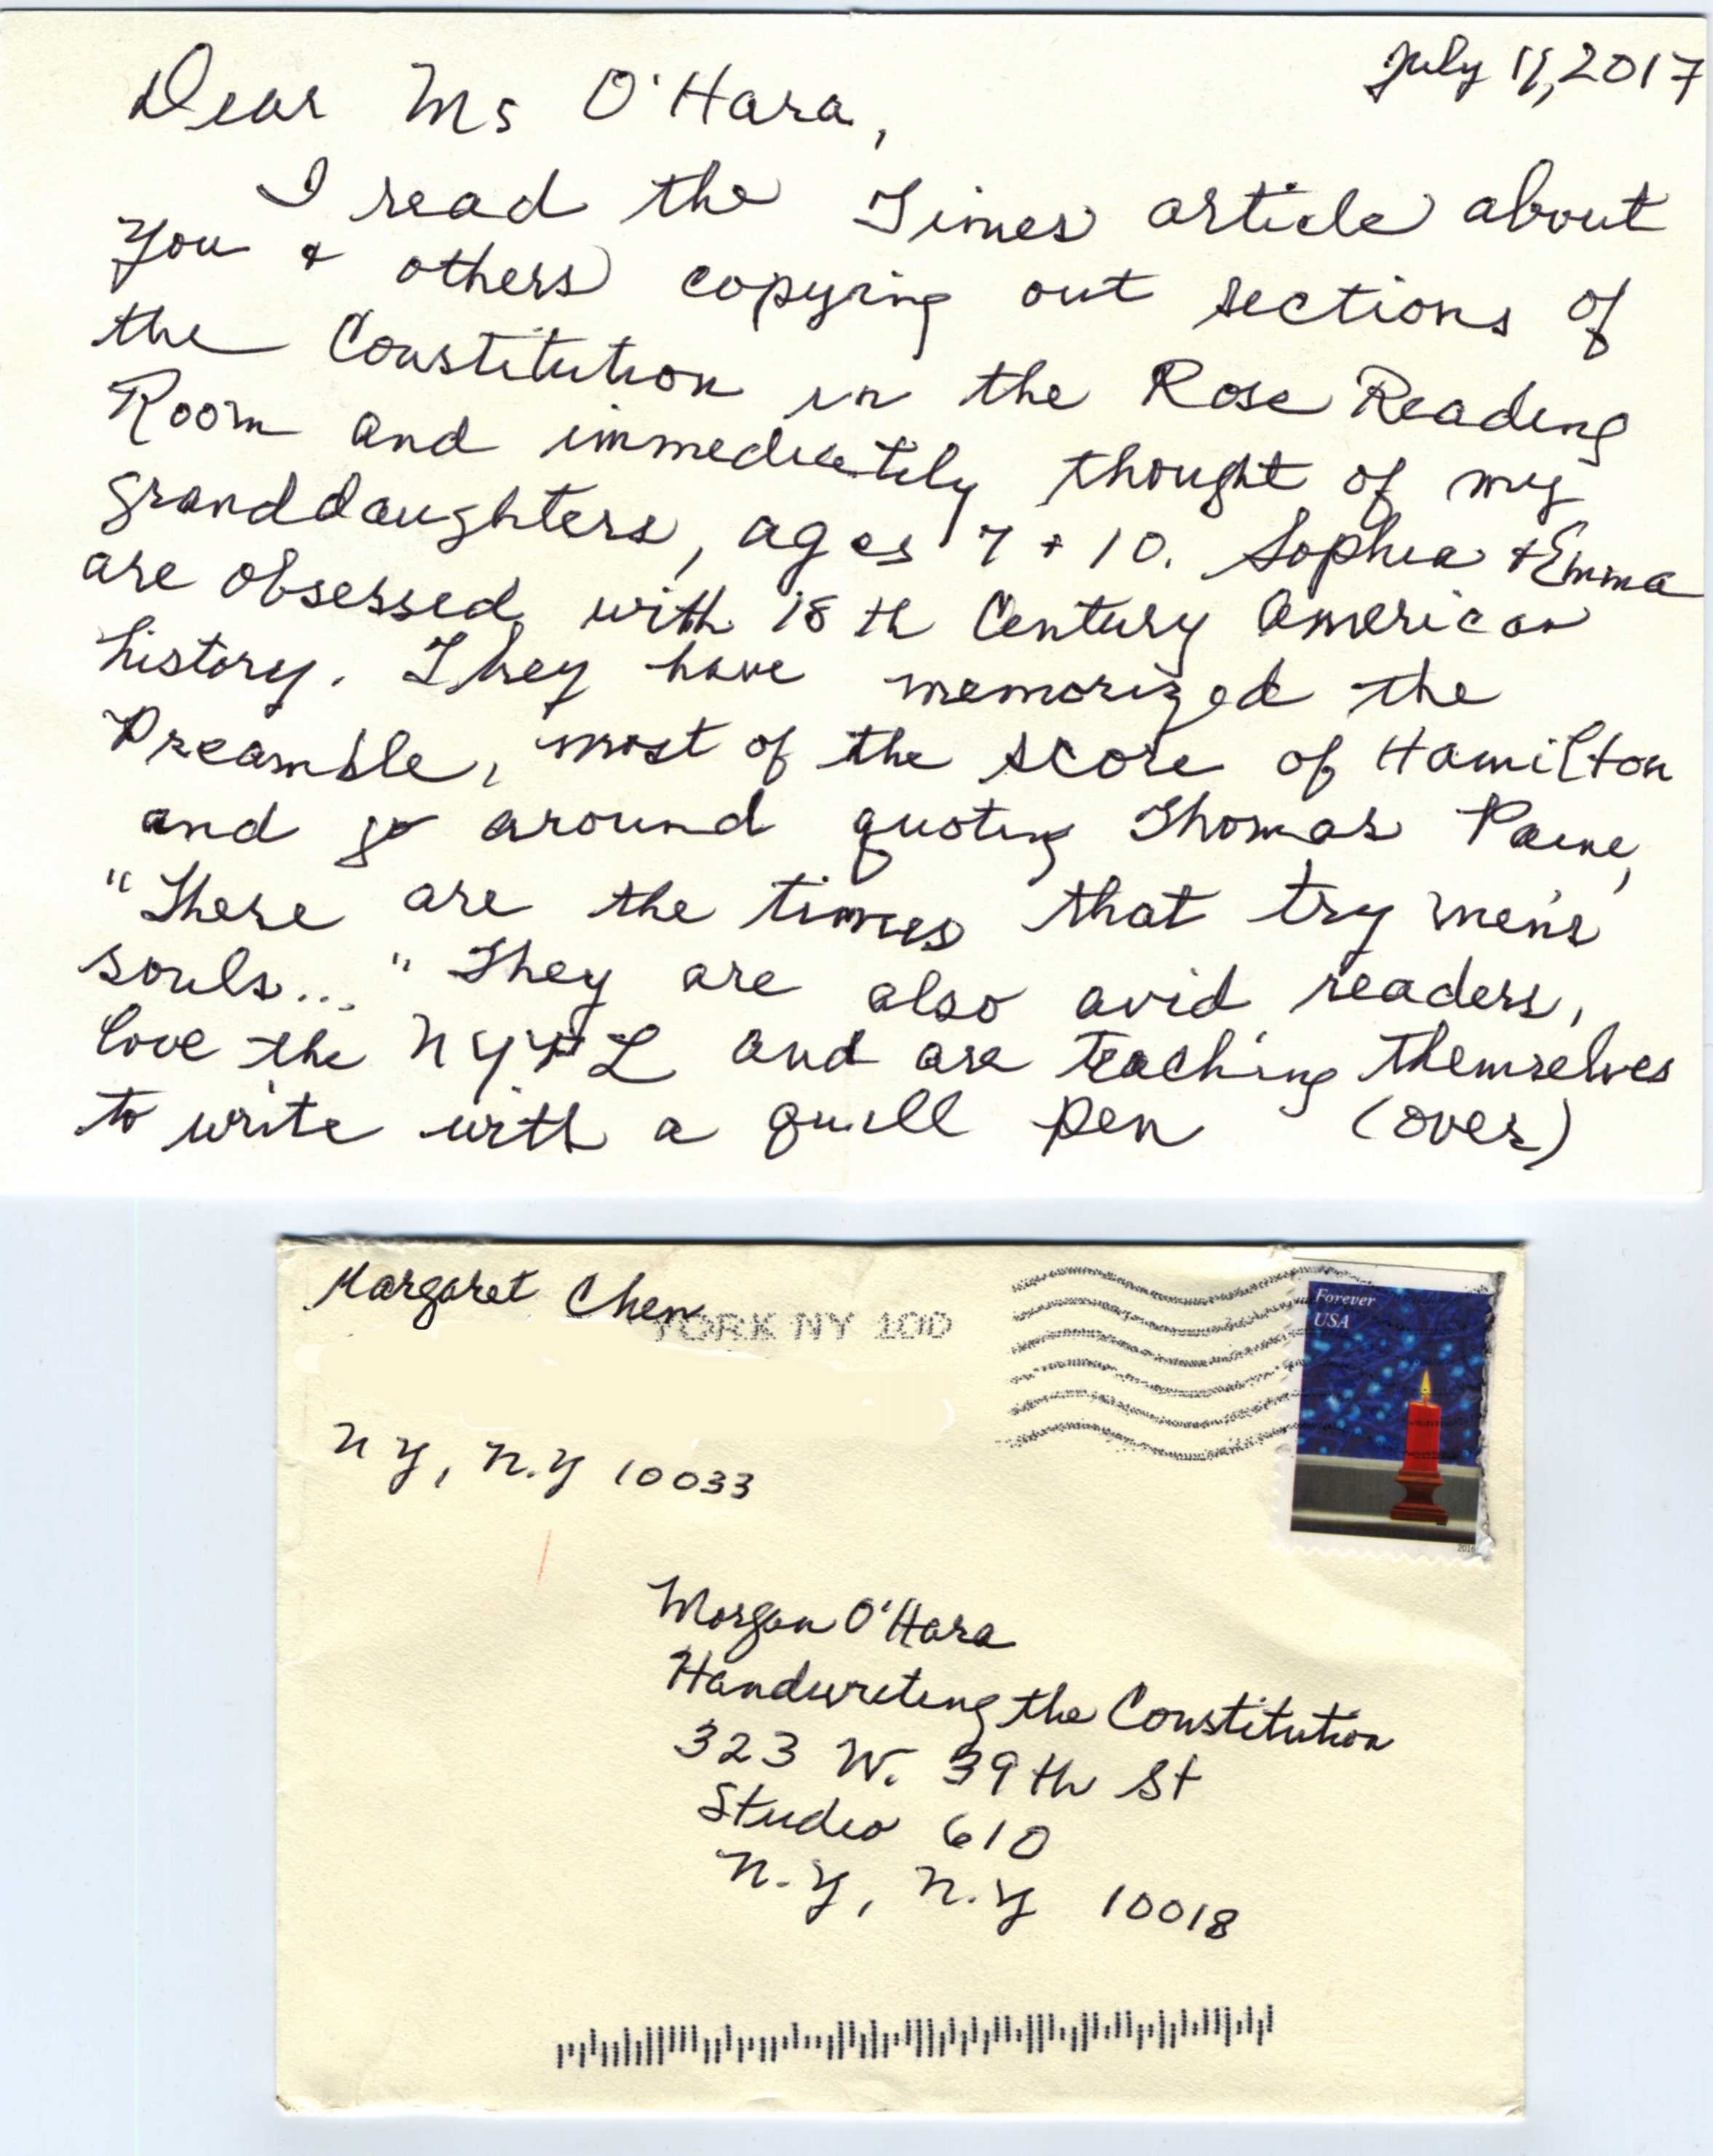 July 2017
Dear Ms O'Hara,
I read the Times article about
you & others copying out sections of
the Constitution in the Rose Reading
Room and immediately thought of my
granddaughters, ages 7 + 10. Sophia + Emma
are obsessed with 18th Century American
history. They have memorized the
Preamble, most of the score of Hamilton
and go around quoting Thomas Paine,
"These are the times that try men's
souls..." They are also avid readers,
love the NYPL and are teaching themselves
to write with a quill pen (over)
Margaret Chen
YORK NY 100
NY, N.Y 10033
Forever
USA
2016
Morgan O'Hara
Handwriting the Constitution
323 W. 39th St
Studio 610
N.Y, N.Y 10018